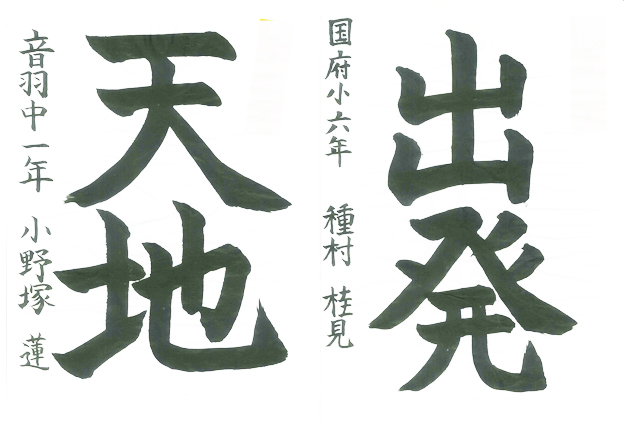 出発
国府小六年 種村 桂見
天地
音羽中一年 小野塚 蓮